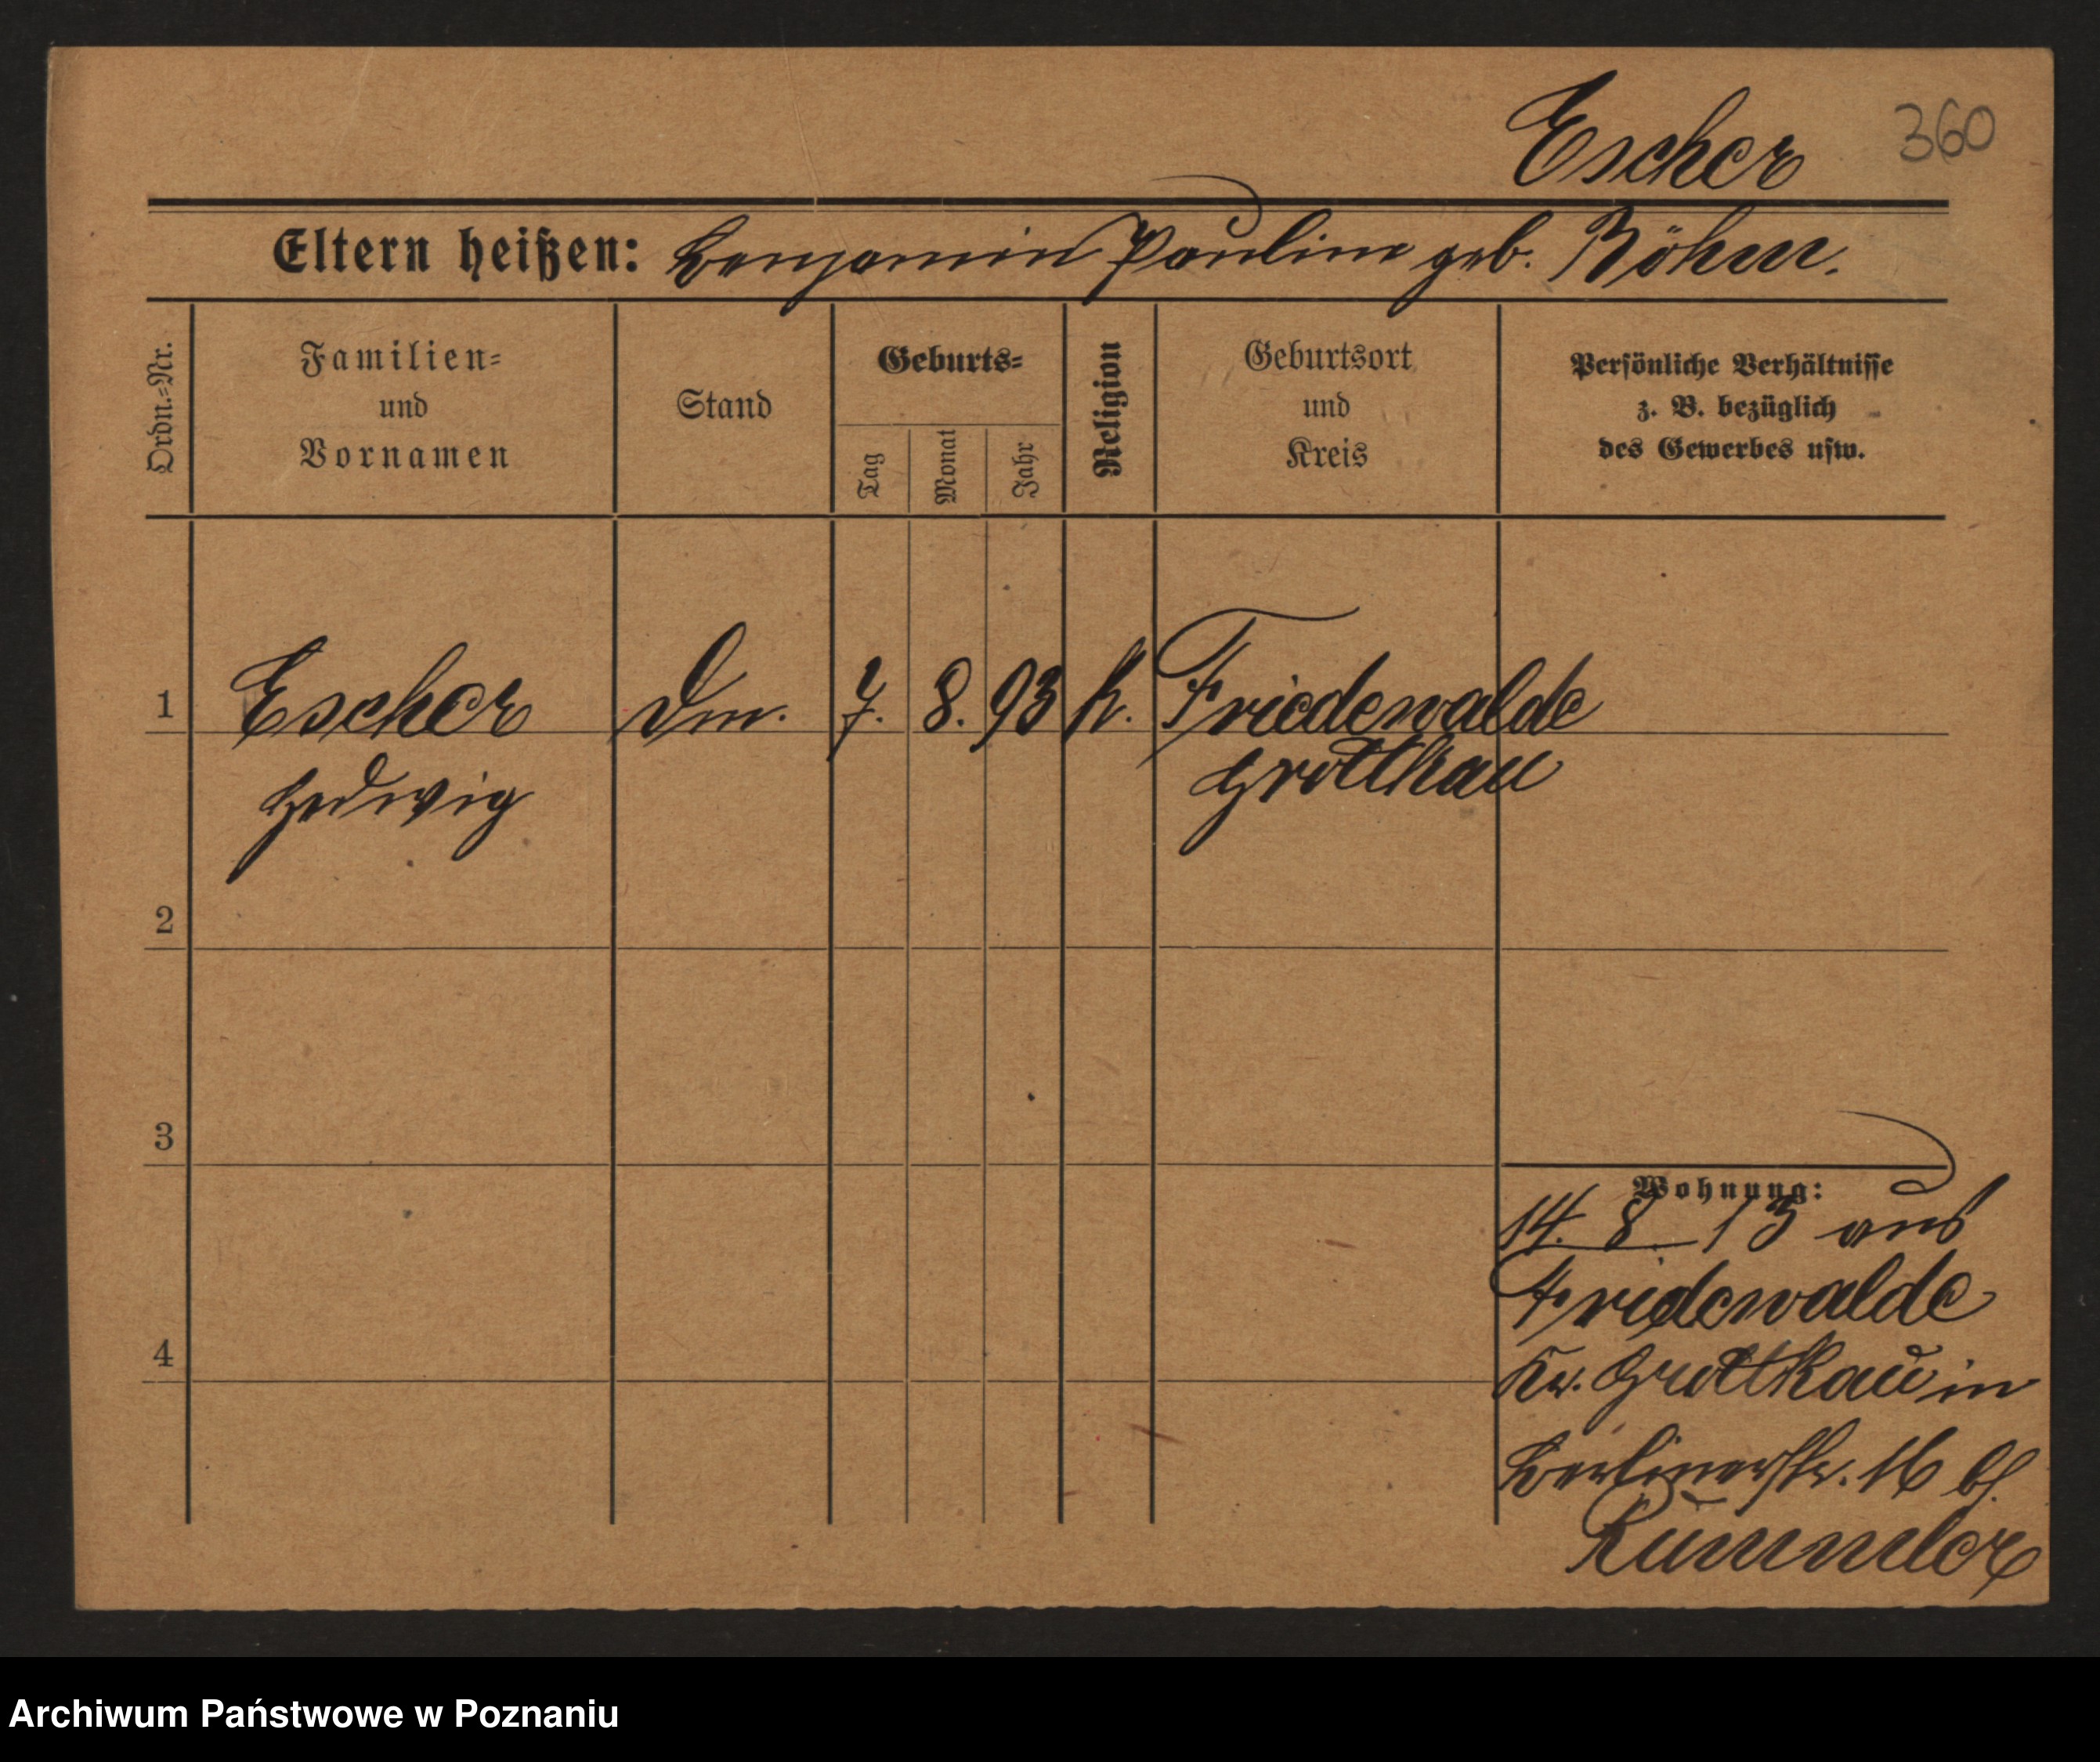 Escher 360
Eltern heißen: Benjamin Pauline geb. Böhm.
Ordn.-Nr.
Familien-
und
Vornamen
Stand
Geburts-
Tag
Monat
Jahr
Religion
Geburtsort
und
Kreis
Persönliche Verhältnisse
z. B. bezüglich
des Gewerbes usw.
1 Escher Dm. 7. 8. 93 k. Friedewalde
Hedwig Grottkau
2
3
4
Wohnung:
14. 8. 13 aus
Fridewalde
Kr. Grottkau in
Berlinerstr. 16 bf.
Rummler
Archiwum Państwowe w Poznaniu